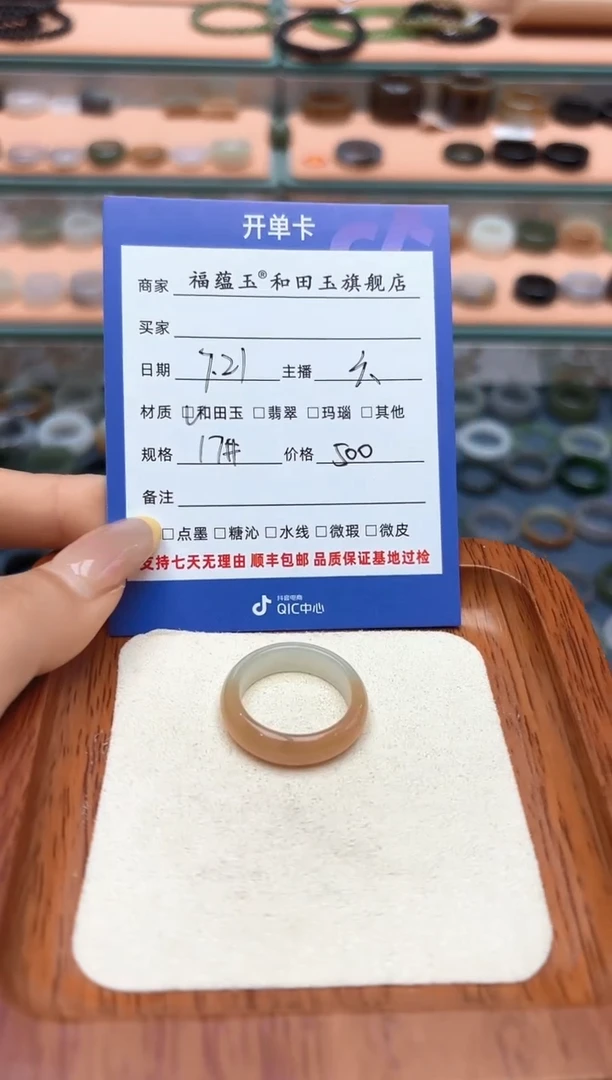 开单卡
商家 福蕴玉®和田玉旗舰店
买家
日期 7.21 主播
材质 □和田玉 □翡翠 □玛瑙 □其他
规格 17# 价格 500
备注
□点墨 □糖沁 □水线 □微瑕 □微皮
支持七天无理由 顺丰包邮 品质保证基地过检
抖音电商
QIC中心